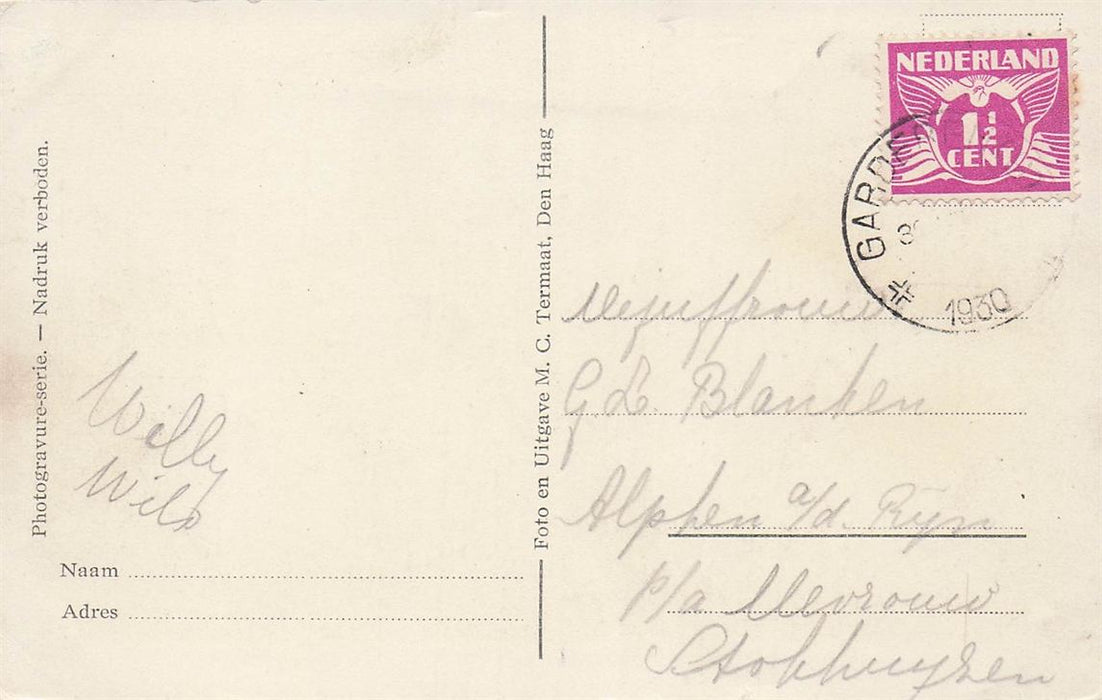 Photogravure-serie. — Nadruk verboden.
Willy
Wils
Naam
Adres
Foto en Uitgave M. C. Termaat, Den Haag
NEDERLAND
1½
CENT
1930
Mejuffrouw
G L. Blanken
Alphen a/d. Ryn
p/a Mevrouw
Stokhuyzen